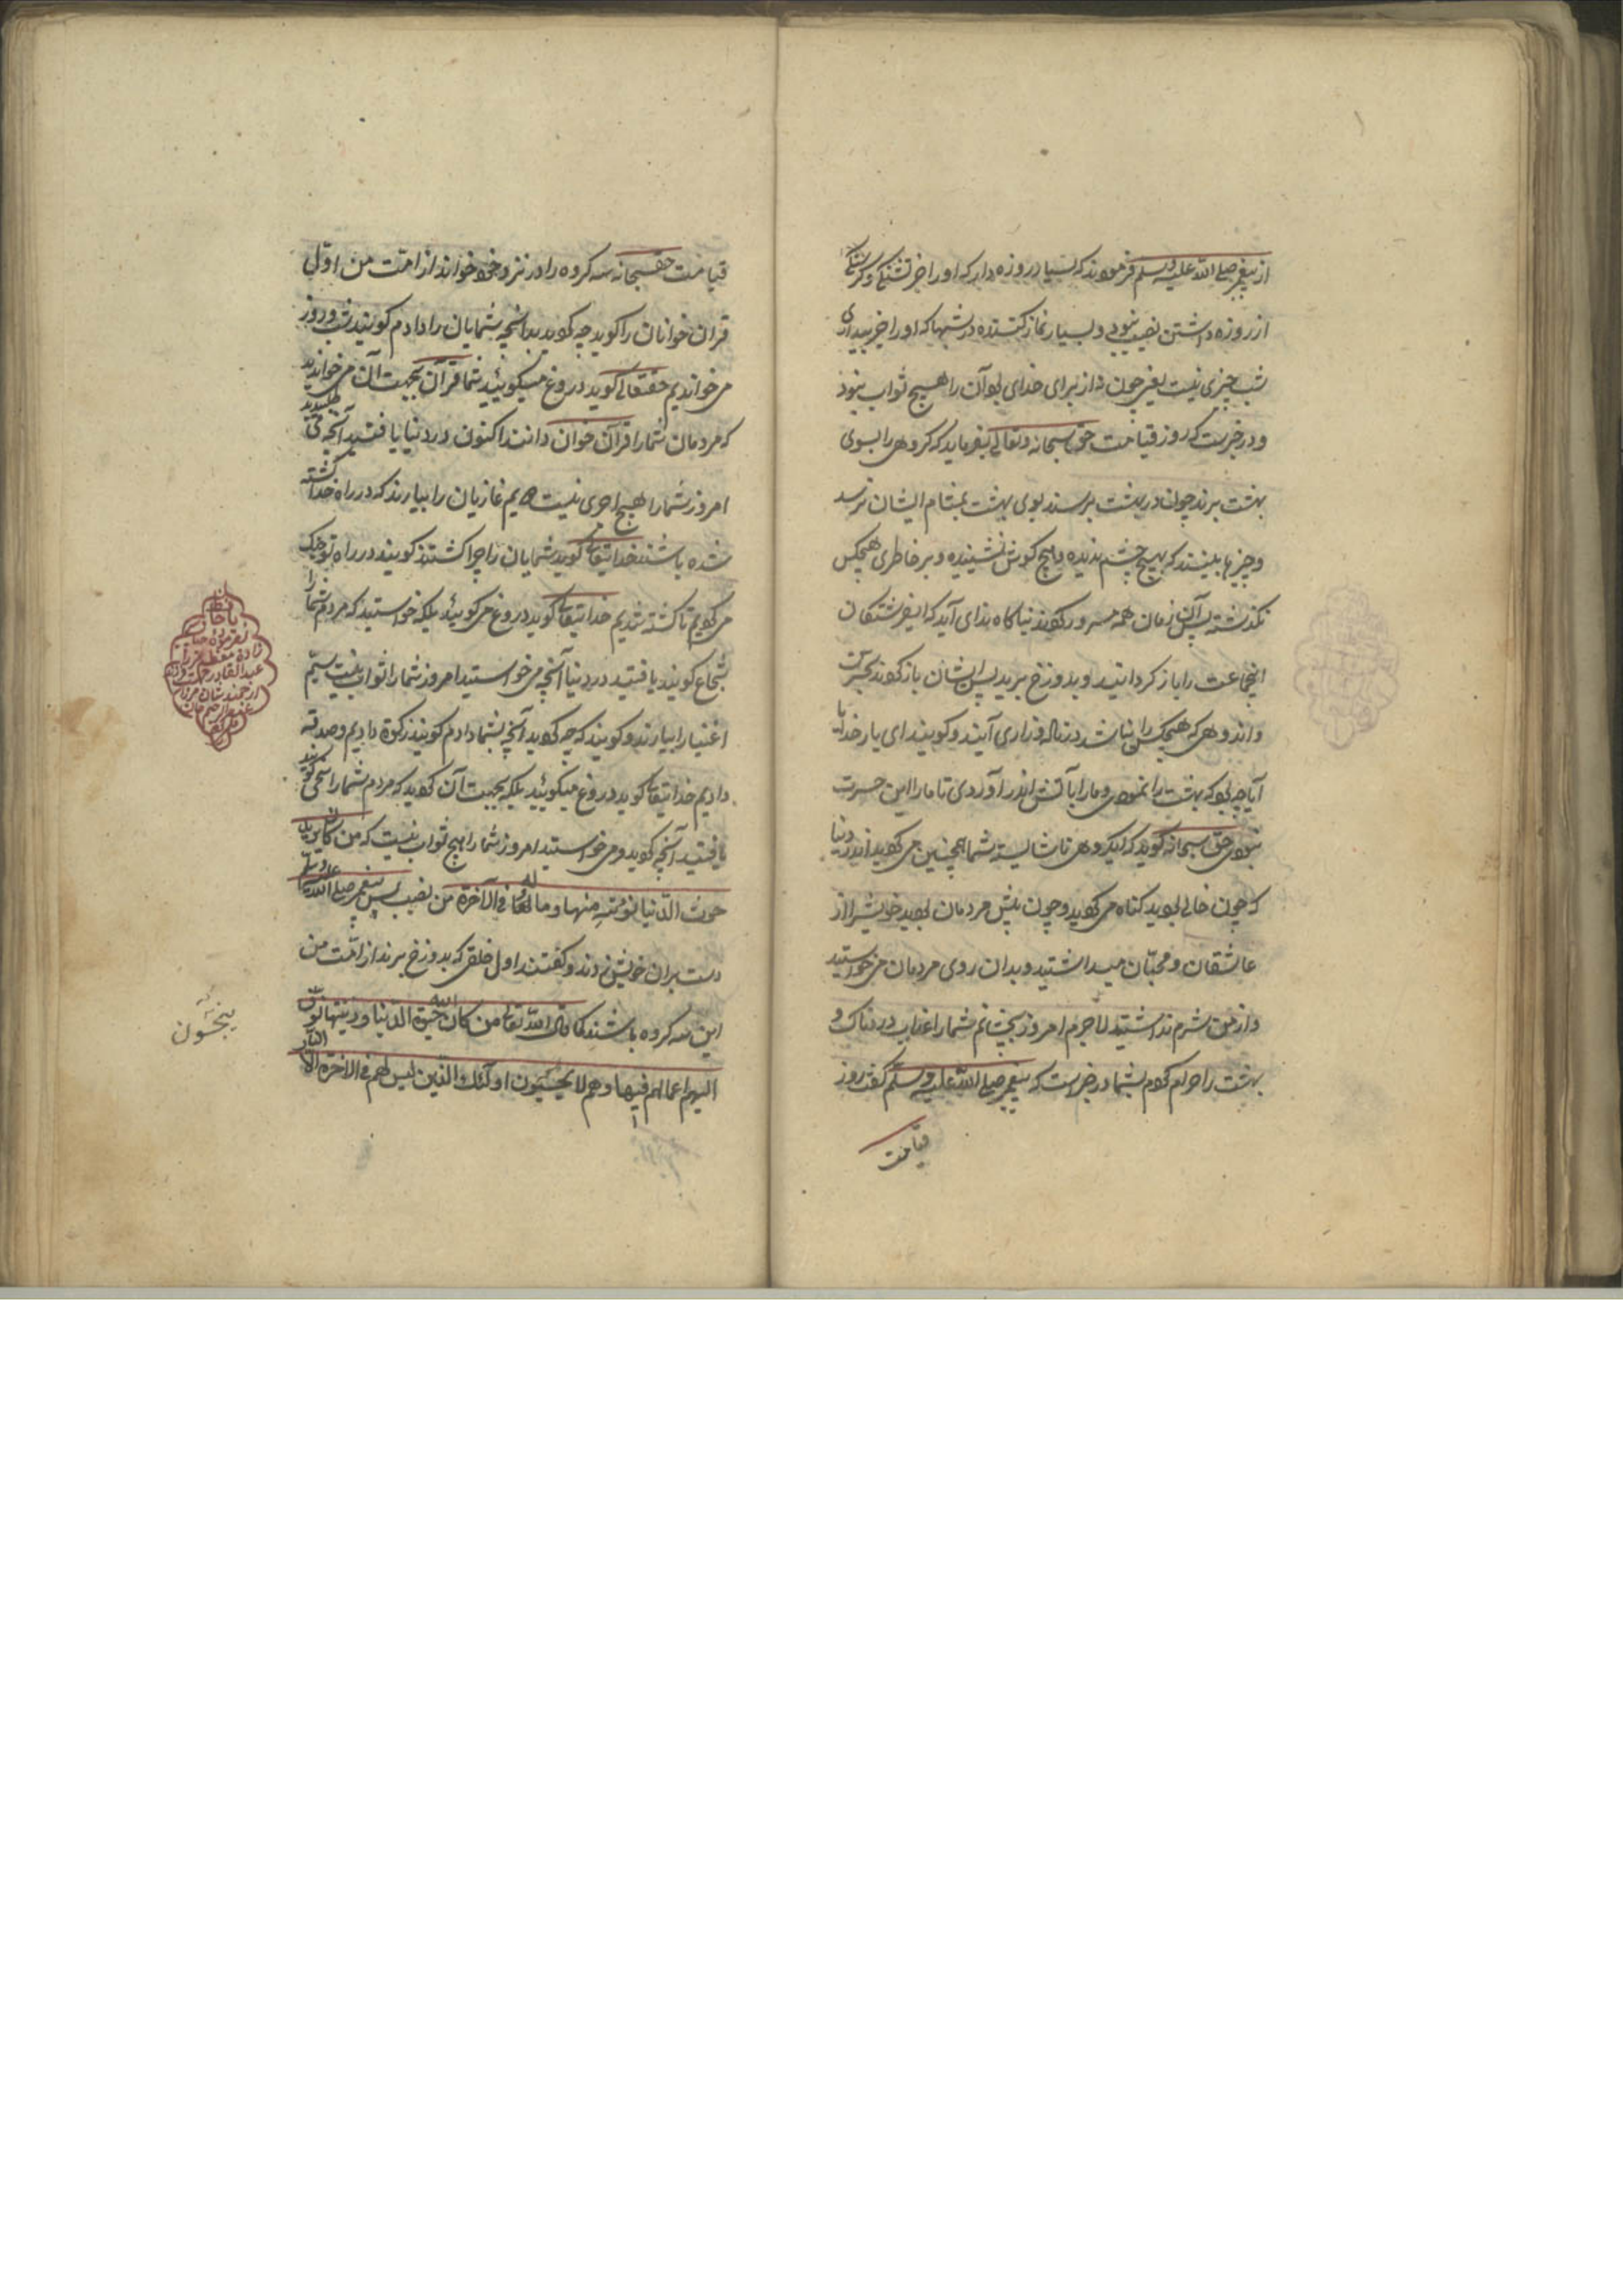 از پیغمبر صلی الله علیه وسلم فرمودند که بسیار روزه دار که او را جز تشنگی و گرسنگی
از روزه داشتن نصیب نبود و بسیار نماز کننده در شبها که او را جز بیداری
شب چیزی نیست یعنی چون از برای خدای بود آن را هیچ ثواب نبود
و در خبرست که روز قیامت حق سبحانه وتعالی بفرماید که گروهی را بسوی
بهشت برند چون در بهشت برسند بوی بهشت بمشام ایشان برسد
و چیزها ببینند که هیچ چشم ندیده و هیچ گوش نشنیده و بر خاطر هیچکس
نگذشته پس آن زمان همه مسرور گردند ناگاه ندای آید که ای فرشتگان
اینجماعت را باز گردانید و بدوزخ برید پس ایشان باز گردند بحسرت
و اندوهی که هیچکس را نباشد در ناله و زاری آیند و گویند ای بار خدایا
آیا چه بود که بهشت را نمودی و ما را بآتش اندر آوردی تا ما را این حسرت
نبودی حق سبحانه گوید که ای گروهی ناشایسته شما همچنین می کردید اندر دنیا
که چون خالی بودید گناه می کردید و چون پیش مردمان بودید خویش را از
عاشقان و محبان میداشتید و بدان روی مردمان می خواستید
و از من شرم نداشتید لا جرم امروز بچشانم شما را عذاب دردناک و
بهشت را حرام کردم بشما در خبرست که پیغمبر صلی الله علیه وسلم گفت روز
قیامت
قیامت حق سبحانه سه گروه را در نزد خود خواند از امت من اول
قرآن خوانان را گوید چه کردید بدانچه شمایان را دادم گویند شب و روز
می خواندیم حق تعالی گوید دروغ میگوئید شما قرآن بجهت آن می خواندید
که مردمان شما را قرآن خوان دانند اکنون در دنیا یافتید آنچه می طلبیدید
امروز شما را هیچ اجری نیست دویم غازیان را بیارند که در راه خدا کشته
شده باشند خدایتعالی گوید شمایان را چرا کشتند گویند در راه تو جنگ
می کردیم تا کشته شدیم خدایتعالی گوید دروغ می گوئید بلکه خواستید که مردم شما را
شجاع گویند یافتید در دنیا آنچه می خواستید امروز شما را ثواب نیست سیم
اغنیا را بیارند و گویند که چه کردید آنچه بشما دادم گویند زکوة دادیم و صدقه
دادیم خدایتعالی گوید دروغ میگوئید بلکه بجهت آن کردید که مردم شما را سخی گویند
یافتید آنچه کردید و می خواستید امروز شما را هیچ ثواب نیست که من کان یرید
حرث الدنیا نؤته منها وما له فی الآخرة من نصیب پس پیغمبر صلی الله علیه وسلم
دست بران خویش زدند و گفتند اول خلقی که بدوزخ برند از امت من
این سه گروه باشند کما قال الله تعالی من کان یرید الحیوة الدنیا وزینتها نوف
الیهم اعمالهم فیها وهم لا یبخسون اولئک الذین لیس لهم فی الآخرة الا النار
یبخسون